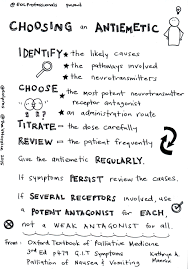 @ EOLProfessionals present
CHOOSING an ANTIEMETIC
IDENTIFY • the likely causes
• the pathways involved
• the neurotransmitters
CHOOSE • the most potent neurotransmitter
receptor antagonist
• an administration route
TITRATE - the dose carefully
REVIEW - the patient frequently
Give the antiemetic REGULARLY.
If symptoms PERSIST review the causes.
If SEVERAL RECEPTORS involved, use
a POTENT ANTAGONIST for EACH,
not a WEAK ANTAGONIST for all.
From: Oxford Textbook of Palliative Medicine
3rd Ed p479 G.I.T Symptoms
Palliation of Nausea & Vomiting
Kathryn A